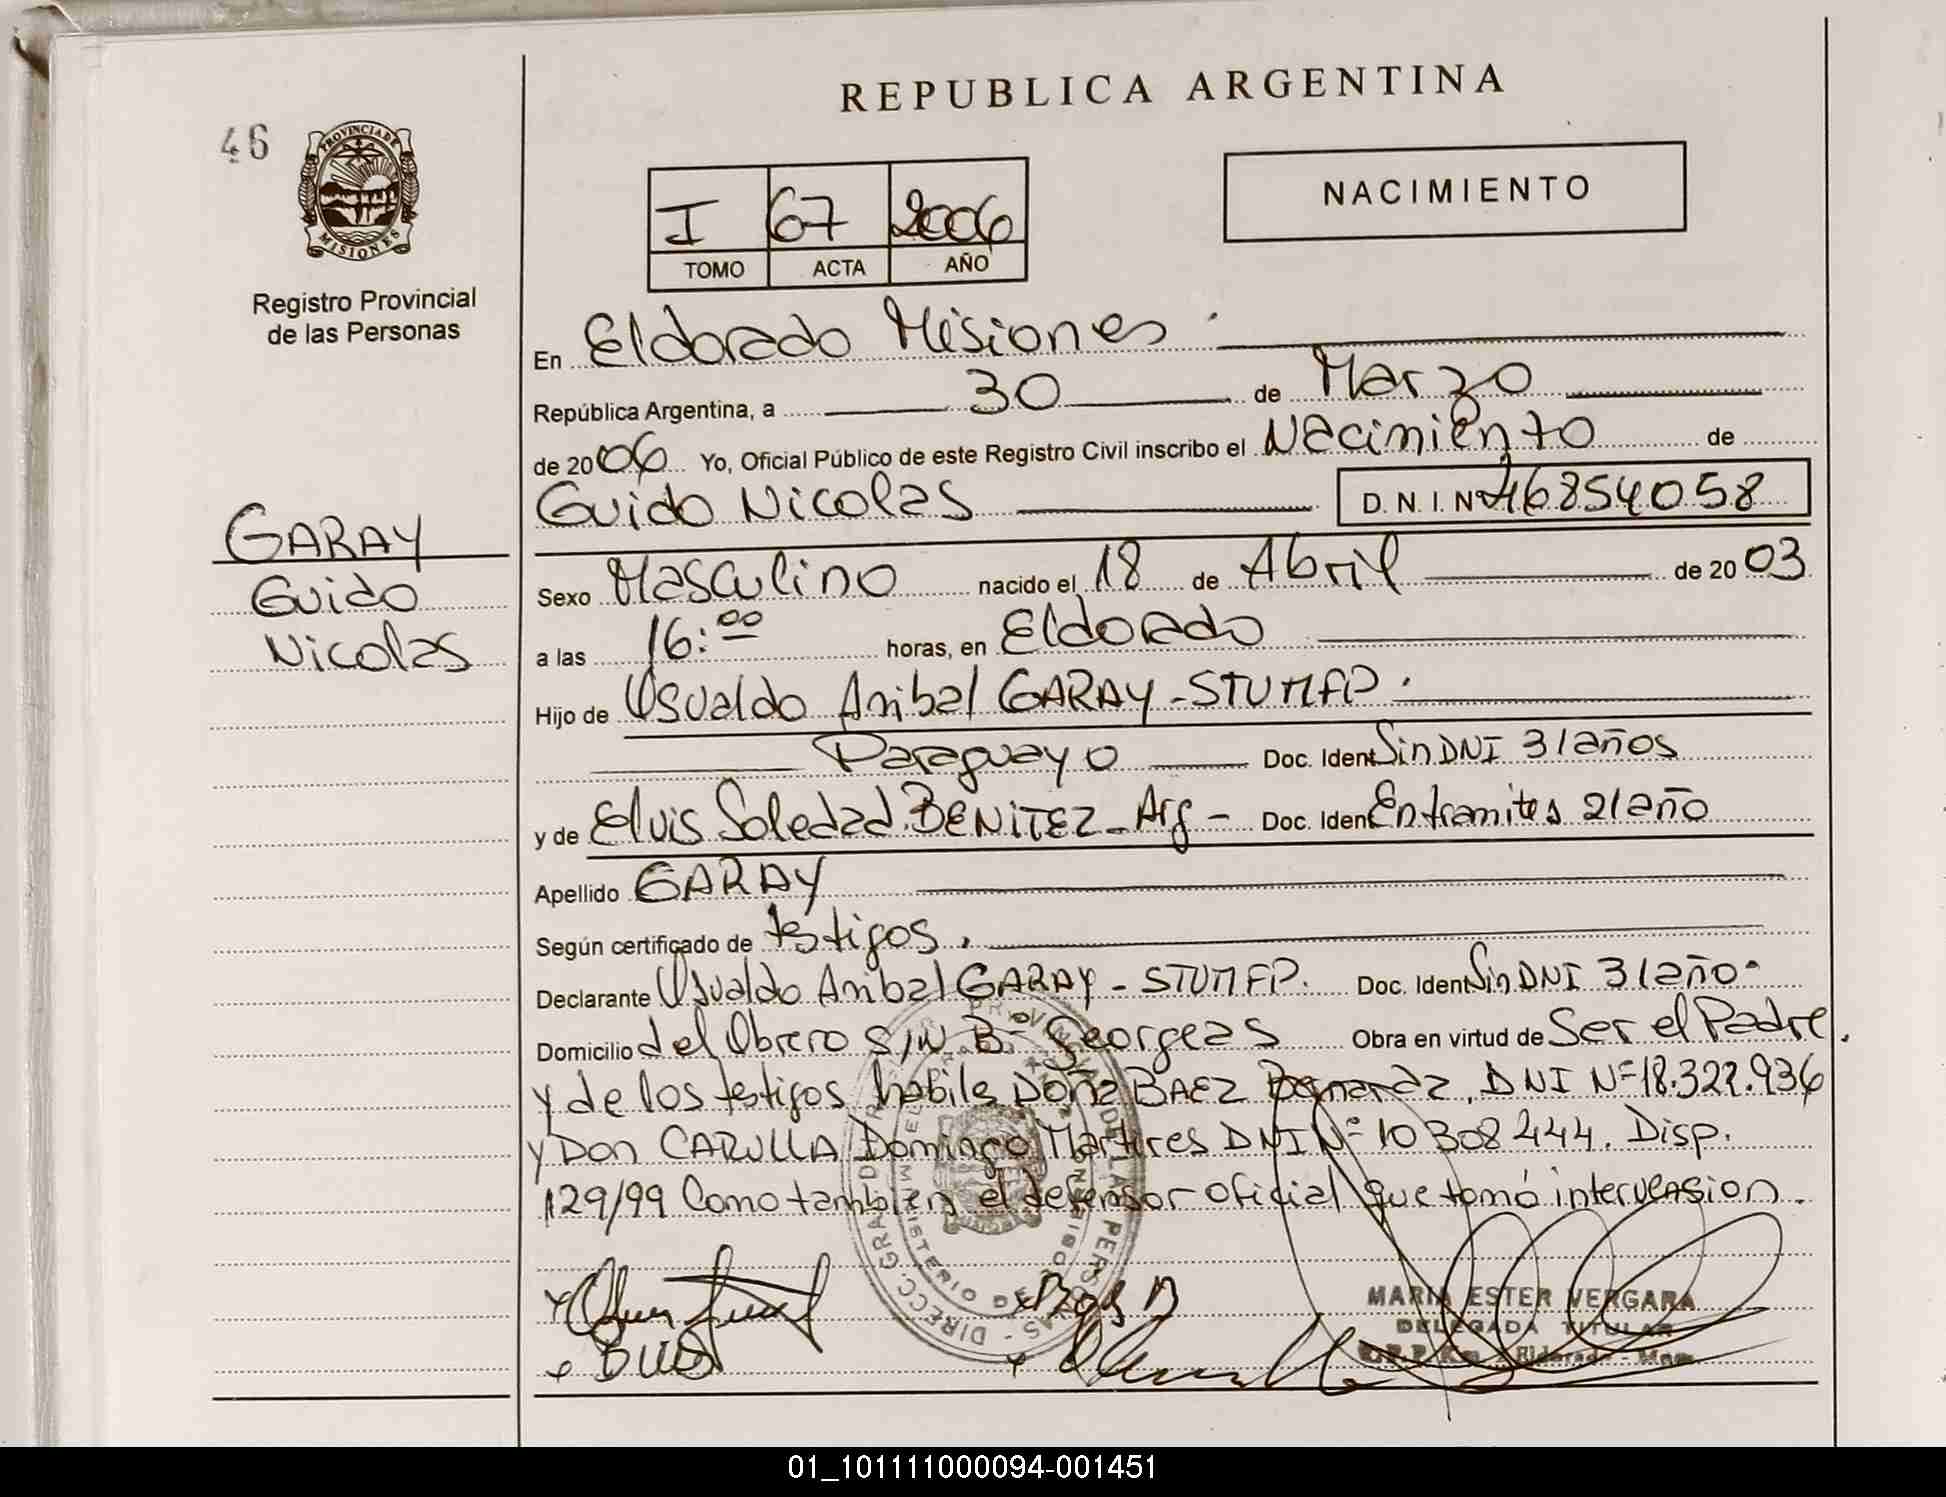 REPUBLICA ARGENTINA
46
PROVINCIA DE
MISIONES
Registro Provincial
de las Personas
I 67 2006
TOMO ACTA AÑO
NACIMIENTO
En Eldorado Misiones.
República Argentina, a 30 de Marzo
de 2006 Yo, Oficial Público de este Registro Civil inscribo el Nacimiento de
Guido Nicolas D.N.I. Nº 46854058
GARAY
Guido
Nicolas
Sexo Masculino nacido el 18 de Abril de 2003
a las 16:00 horas, en Eldorado
Hijo de Osvaldo Anibal GARAY-STUMFP.
Paraguayo Doc. Ident Sin DNI 31 años
y de Elvis Soledad BENITEZ-Arg- Doc. Ident En tramites 21 año
Apellido GARAY
Según certificado de testigos.
Declarante Osvaldo Anibal GARAY-STUMFP. Doc. Ident Sin DNI 31 año.
Domicilio del Obrero S/N Bº Georgeas Obra en virtud de Ser el Padre.
y de los testigos habiles Doña BAEZ Bernarda, DNI Nº 18.322.936
y Don CARULLA Domingo Martires DNI Nº 10308244. Disp.
129/99 Como tambien el defensor oficial que tomó intervension.
MARIA ESTER VERGARA
DELEGADA TITULAR
01_101111000094-001451